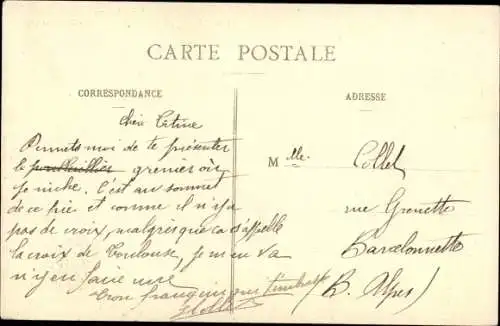 CARTE POSTALE
CORRESPONDANCE
ADRESSE
Chère Titine
Permets moi de te présenter
le grenier où
je niche. C'est au sommet
de ce pic et comme il n'y a
pas de croix, malgrés que ça s'appelle
la croix de Toulouse, je m'en va
n'y en faire une
Ton frangin que
Melle. Collet
rue Grenette
Barcelonnette
(B. Alpes)